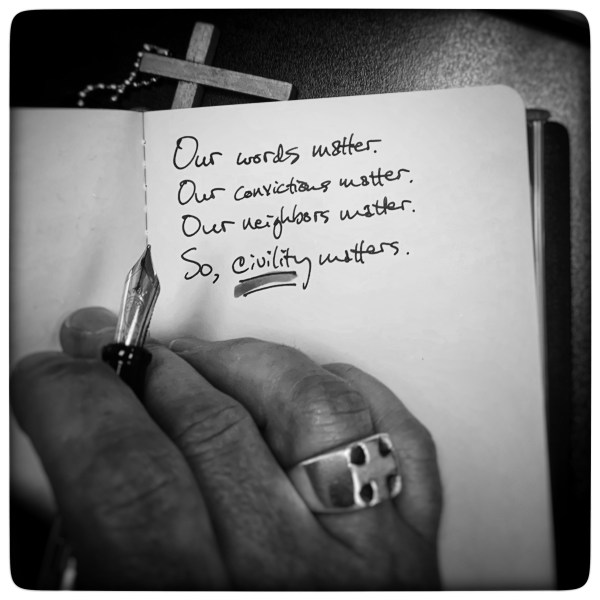 Our words matter.
Our convictions matter.
Our neighbors matter.
So, civility matters.